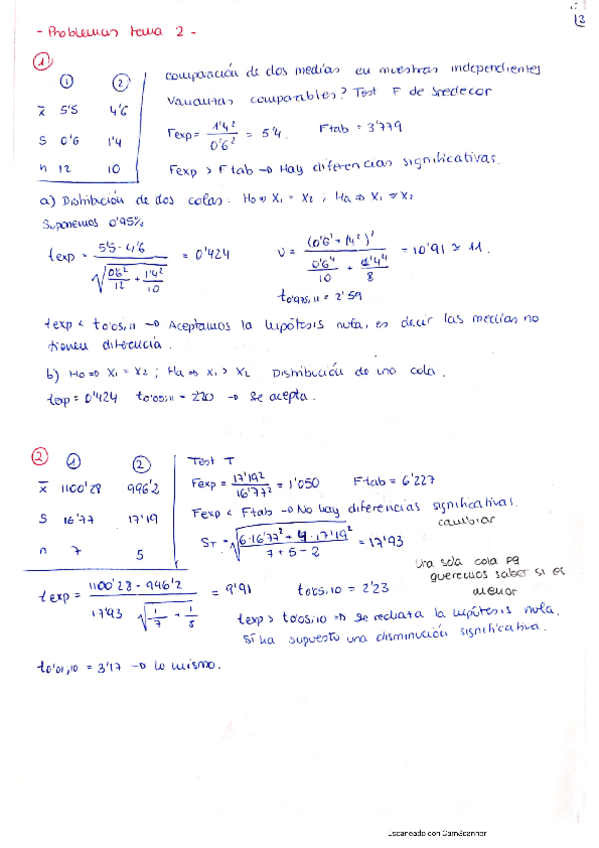 - Problemas tema 2 -
13
①
① ②
x̄ 5'5 4'6
S 0'6 1'4
n 12 10
comparación de dos medias en muestras independientes
Varianzas comparables? Test F de Snedecor
Fexp = 1'4² / 0'6² = 5'4. Ftab = 3'779
Fexp > Ftab → Hay diferencias significativas.
a) Distribución de dos colas. Ho ⇒ X₁ = X₂ ; Ha ⇒ X₁ ≠ X₂
Suponemos 0'95%
texp = 5'5 - 4'6 / √(0'6²/12 + 1'4²/10) = 0'424
ν = (0'6² + 1'4²)² / (0'6⁴/10 + 1'4⁴/8) = 10'91 ≃ 11.
t0'975,11 = 2'59
texp < t0'05,11 → Aceptamos la hipótesis nula, es decir las medias no
tienen diferencia.
b) Ho ⇒ X₁ = X₂ ; Ha ⇒ X₁ > X₂ Distribución de una cola.
texp = 0'424 t0'05,11 = 2'20 → Se acepta.
②
① ②
x̄ 1100'28 996'2
S 16'77 17'19
n 7 5
Test T
Fexp = 17'19² / 16'77² = 1'050 Ftab = 6'227
Fexp < Ftab → No hay diferencias significativas.
cambiar
ST = √(6·16'77² + 4·17'19² / 7+5-2) = 17'93
Una sola cola pq
queremos saber si es
menor
texp = 1100'28 - 996'2 / 17'93 √(1/7 + 1/5) = 9'91 t0'05,10 = 2'23
texp > t0'05,10 ⇒ Se rechaza la hipótesis nula.
Sí ha supuesto una disminución significativa.
t0'01,10 = 3'17 → lo mismo.
Escaneado con CamScanner